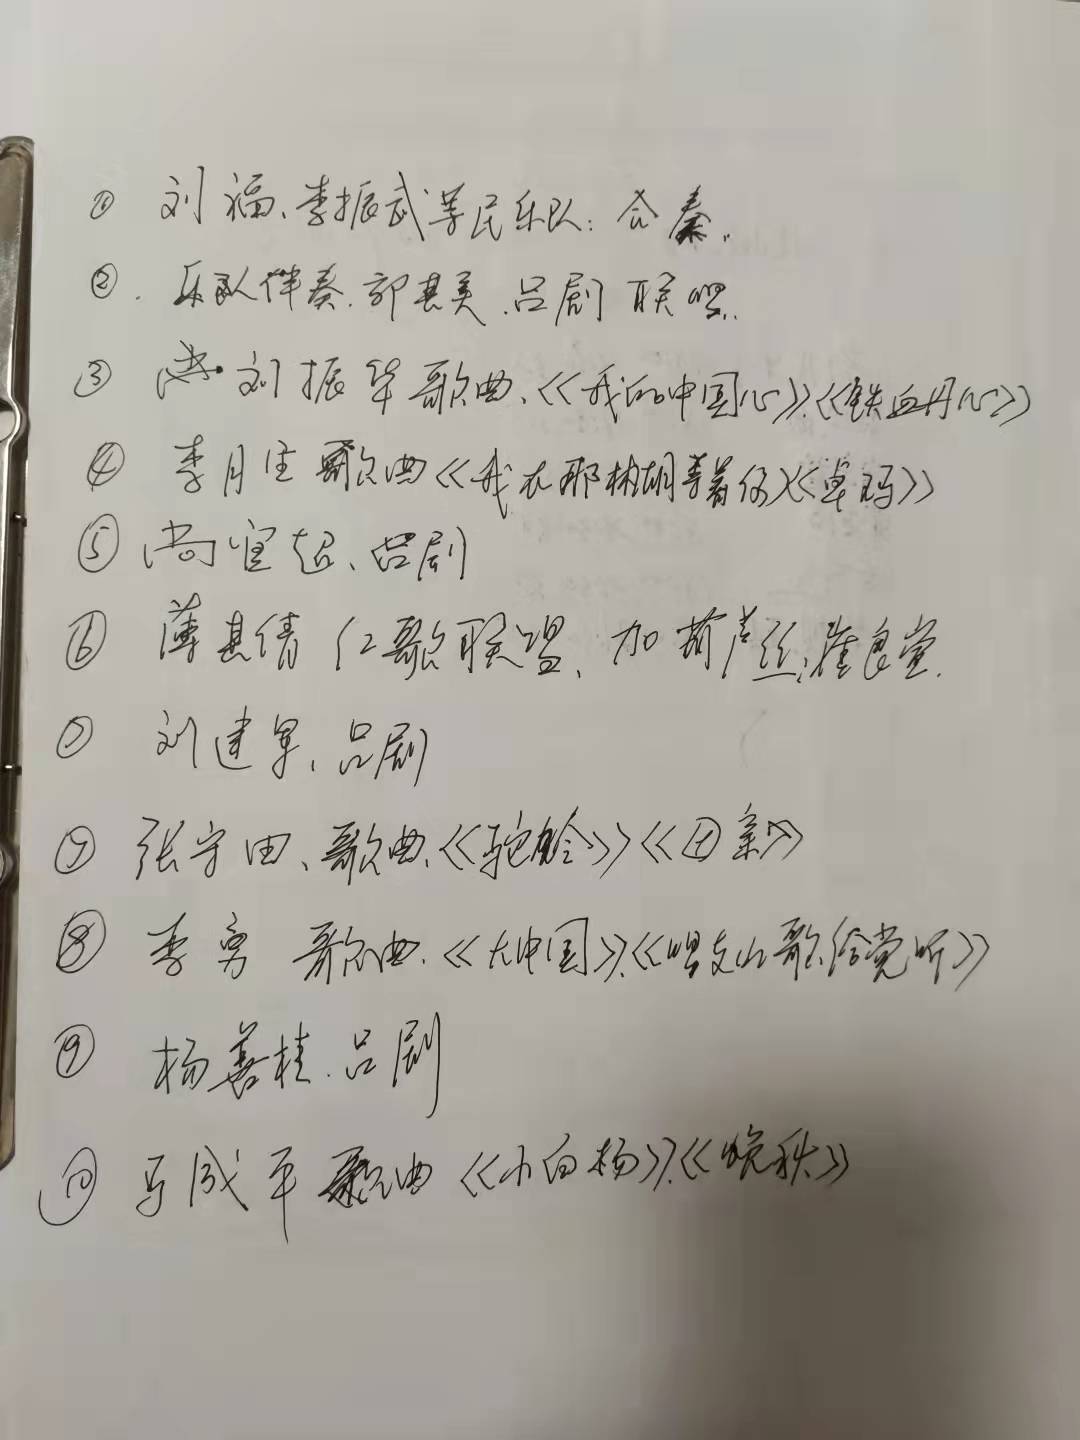 ① 刘福、李振武等民乐队：合奏.
② . 乐队伴奏.郭其美.吕剧 联唱.
③ 刘振华歌曲、《我的中国心》、《铁血丹心》
④ 李月 歌曲《我在那林湖等着你》《卓玛》
⑤ 尚宜超、吕剧
⑥ 薄其倩 红歌联唱、加葫芦丝;崔良堂.
刘建军、吕剧
⑦ 张守田、歌曲、《驼铃》《母亲》
⑧ 李勇 歌曲.《大中国》、《唱支山歌给党听》
⑨ 杨善桂.吕剧
⑩ 马成平 歌曲 《小白杨》、《晚秋》